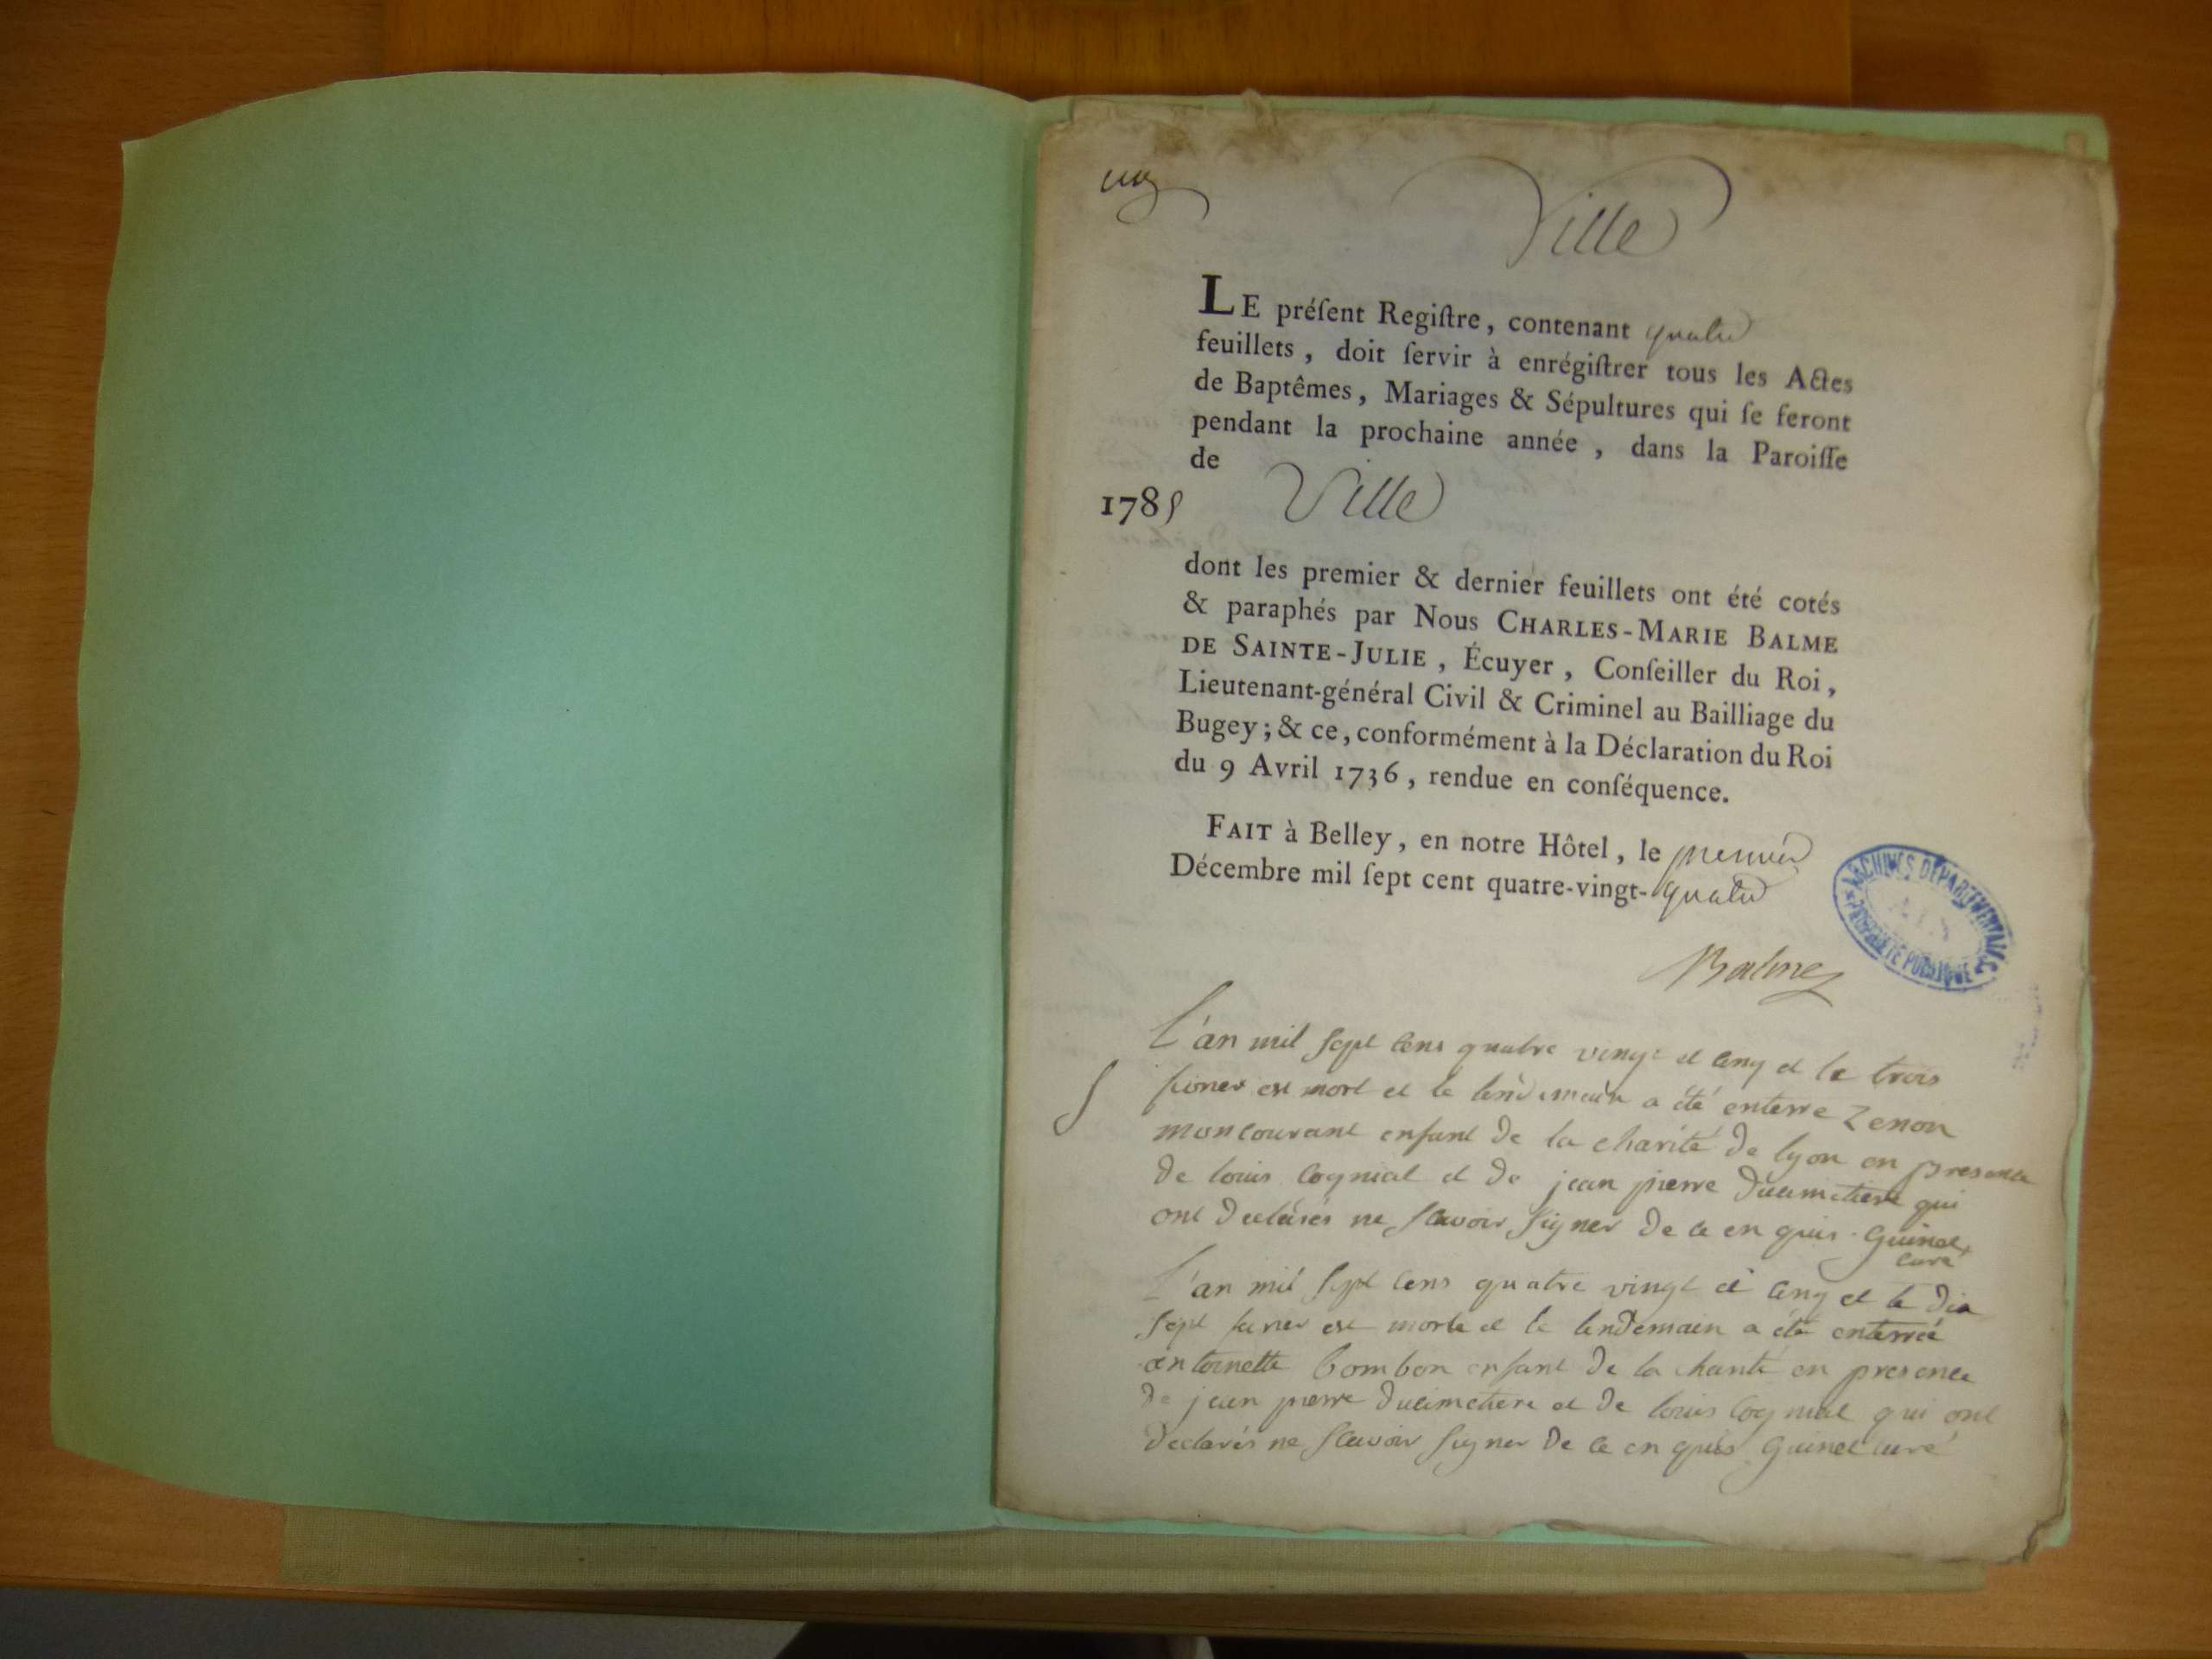 Ville
LE préſent Regiſtre, contenant quatre
feuillets, doit ſervir à enrégiſtrer tous les Actes
de Baptêmes, Mariages & Sépultures qui ſe feront
pendant la prochaine année, dans la Paroiſſe
de
1785 Ville
dont les premier & dernier feuillets ont été cotés
& paraphés par Nous CHARLES-MARIE BALME
DE SAINTE-JULIE, Écuyer, Conſeiller du Roi,
Lieutenant-général Civil & Criminel au Bailliage du
Bugey; & ce, conformément à la Déclaration du Roi
du 9 Avril 1736, rendue en conſéquence.
FAIT à Belley, en notre Hôtel, le premier
Décembre mil ſept cent quatre-vingt-quatre
ARCHIVES DEPARTEMENTALES
AIN
PROPRIETE PUBLIQUE
Balme
L'an mil sept cens quatre vingt et cinq et le trois
S fevrier est mort et le lendemain a été enterre Zenon
moncourant enfant de la charité de lyon en presence
de louis Cognial et de jean pierre ducimetiere qui
ont declarés ne scavoir signer de ce en quis. Guinet
curé
L'an mil sept cens quatre vingt et cinq et le dix
sept fevrier est morte et le lendemain a été enterrée
antoinette Bombon enfant de la charité en presence
de jean pierre ducimetiere et de louis Cognial qui ont
declarés ne scavoir signer de ce en quis Guinet curé